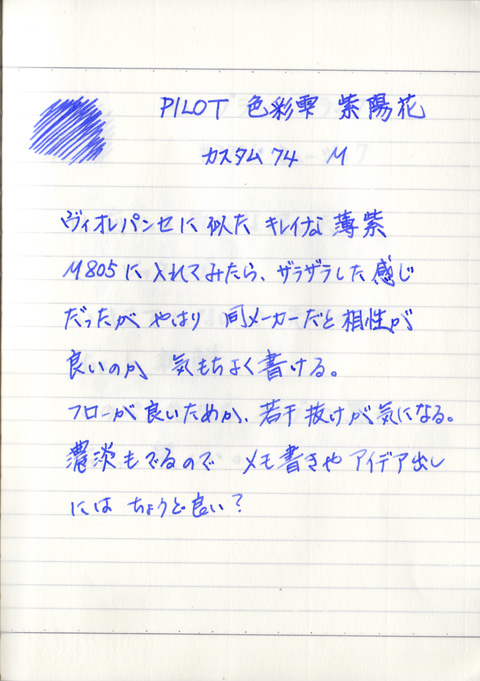 PILOT 色彩雫 紫陽花
カスタム74 M
ヴィオレパンセに似たキレイな薄紫
M805に入れてみたら、ザラザラした感じ
だったが やはり 同メーカーだと相性が
良いのか 気もちよく書ける。
フローが良いためか、若干抜けが気になる。
濃淡もでるので メモ書きや アイデア出し
には ちょうど良い?